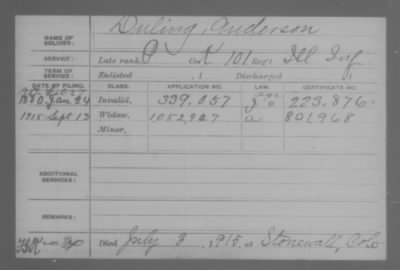 Duling, Anderson
NAME OF SOLDIER:
SERVICE: Late rank P Co K 101 Reg't Ill Inf.
TERM OF SERVICE: Enlisted , 1 Discharged , 1
DATE OF FILING. CLASS. APPLICATION NO. LAW. CERTIFICATE NO.
1880 Jan 24 Invalid, 339,057 223,876
1915 Sept 13 Widow, 1052,927 a 801,968
Minor,
ADDITIONAL SERVICES:
REMARKS:
Died July 2, 1915, at Stonewall, Colo